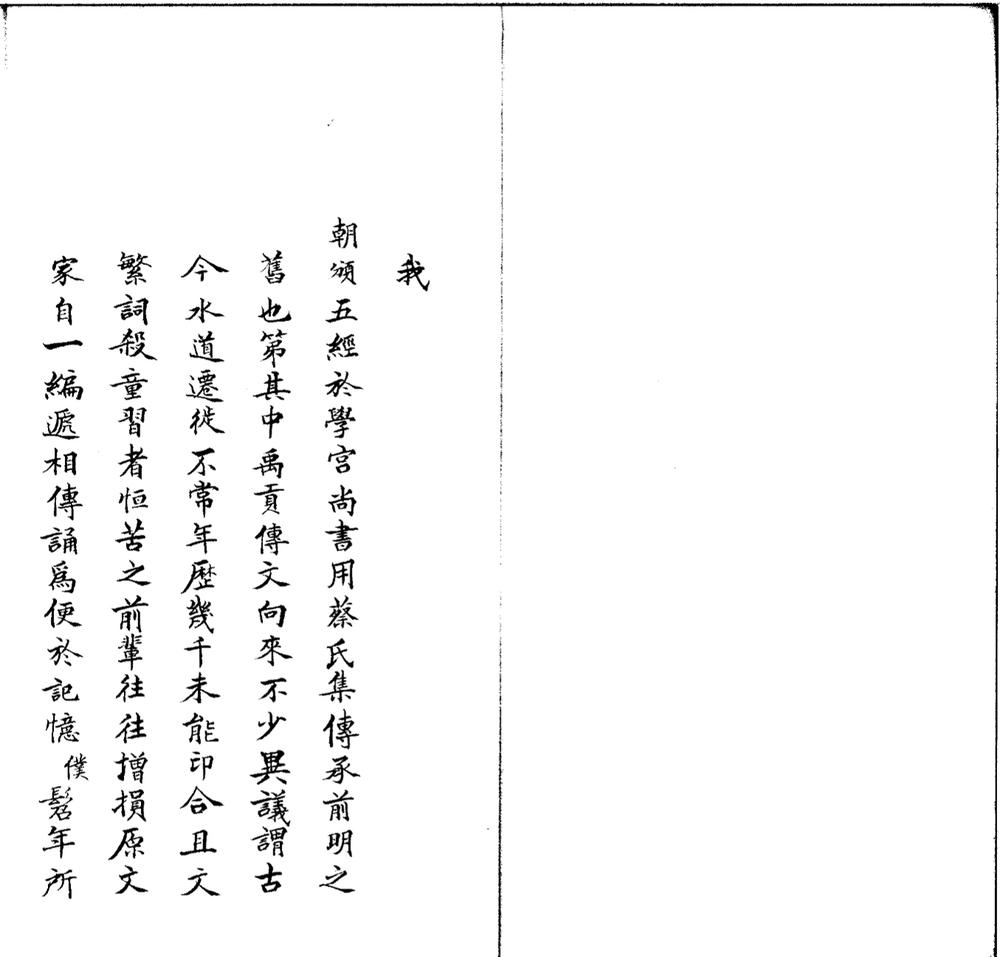 我
朝頒五經於學宮尚書用蔡氏集傳承前明之
舊也第其中禹貢傳文向來不少異議謂古
今水道遷徙不常年歷幾千未能印合且文
繁詞殺童習者恒苦之前輩往往增損原文
家自一編遞相傳誦爲便於記憶僕髫年所